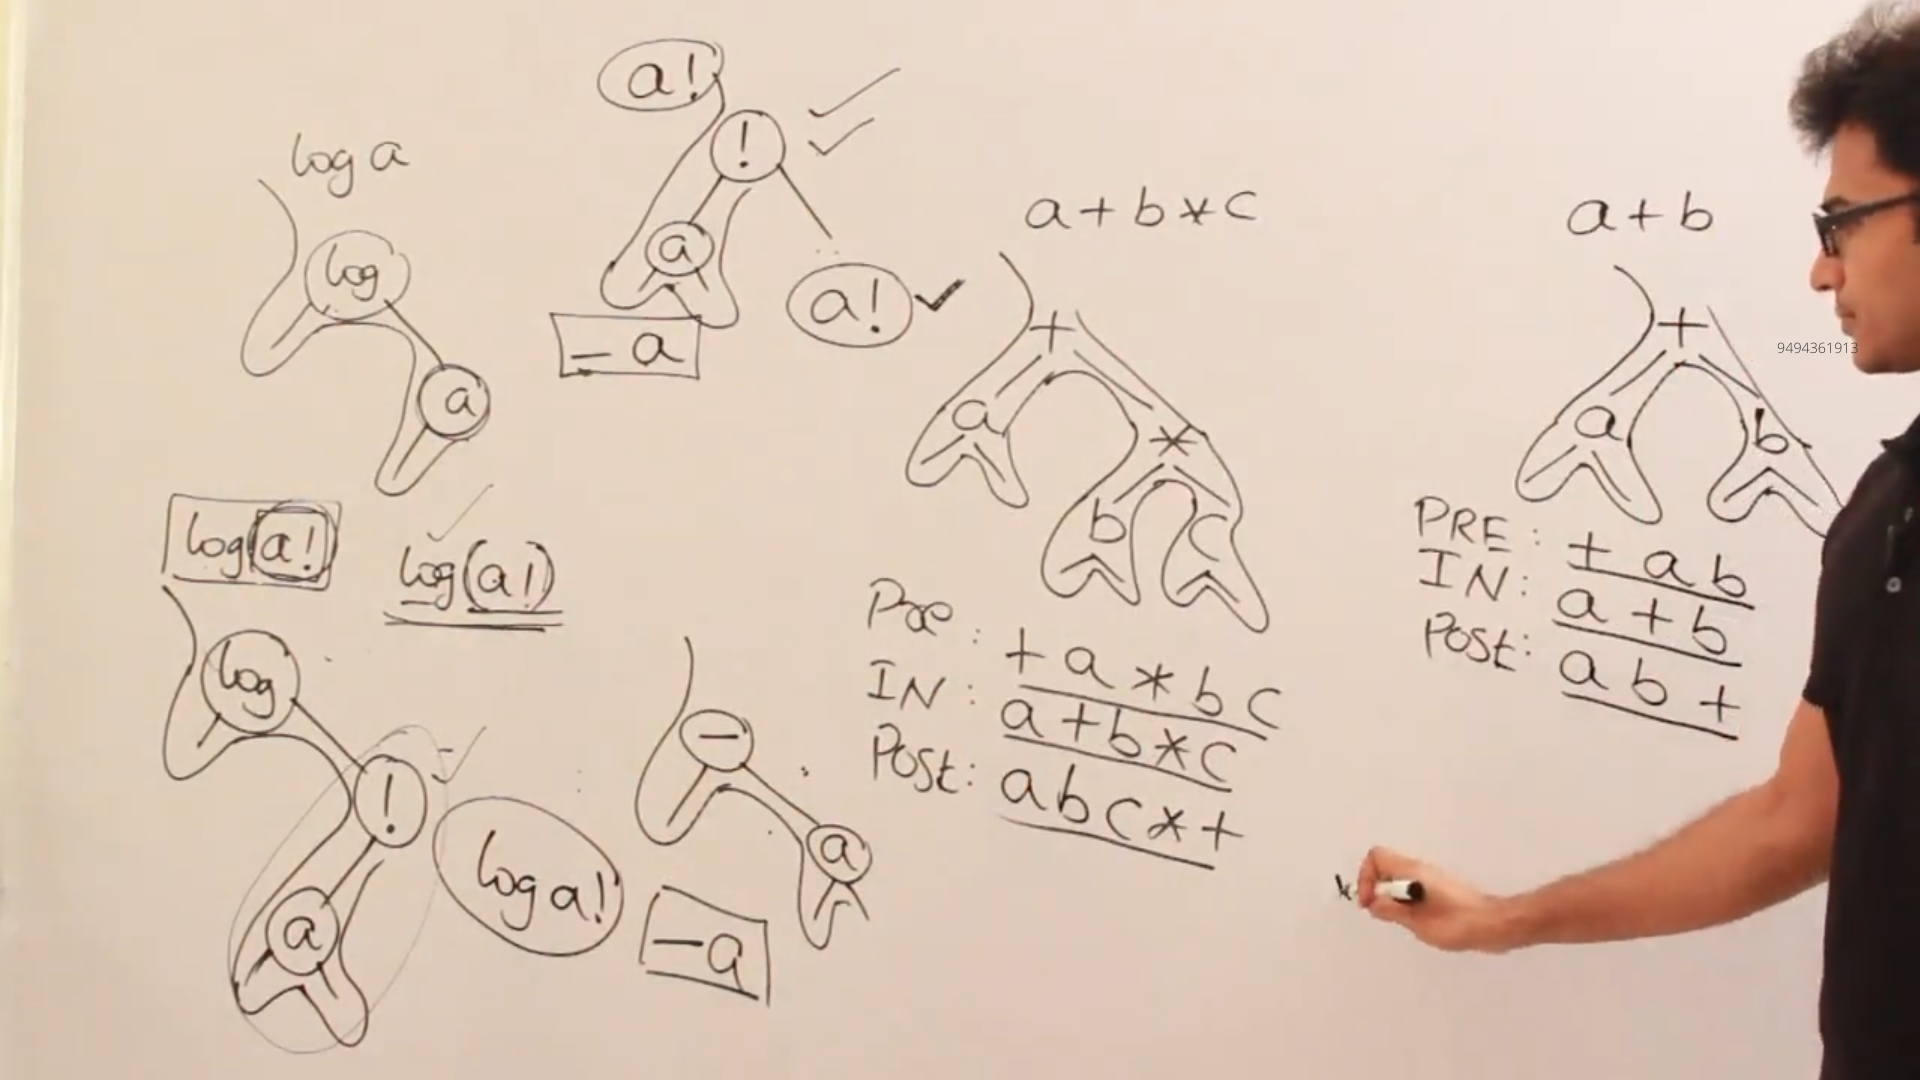 log a
log
a
a!
!
a
a!
– a
log a!
log(a!)
log
!
a
log a!
–
a
–a
a+b*c
+
a
*
b
c
Pre: +a*bc
IN: a+b*c
Post: abc*+
a+b
+
a
b
PRE: +ab
IN: a+b
Post: ab+
9494361913